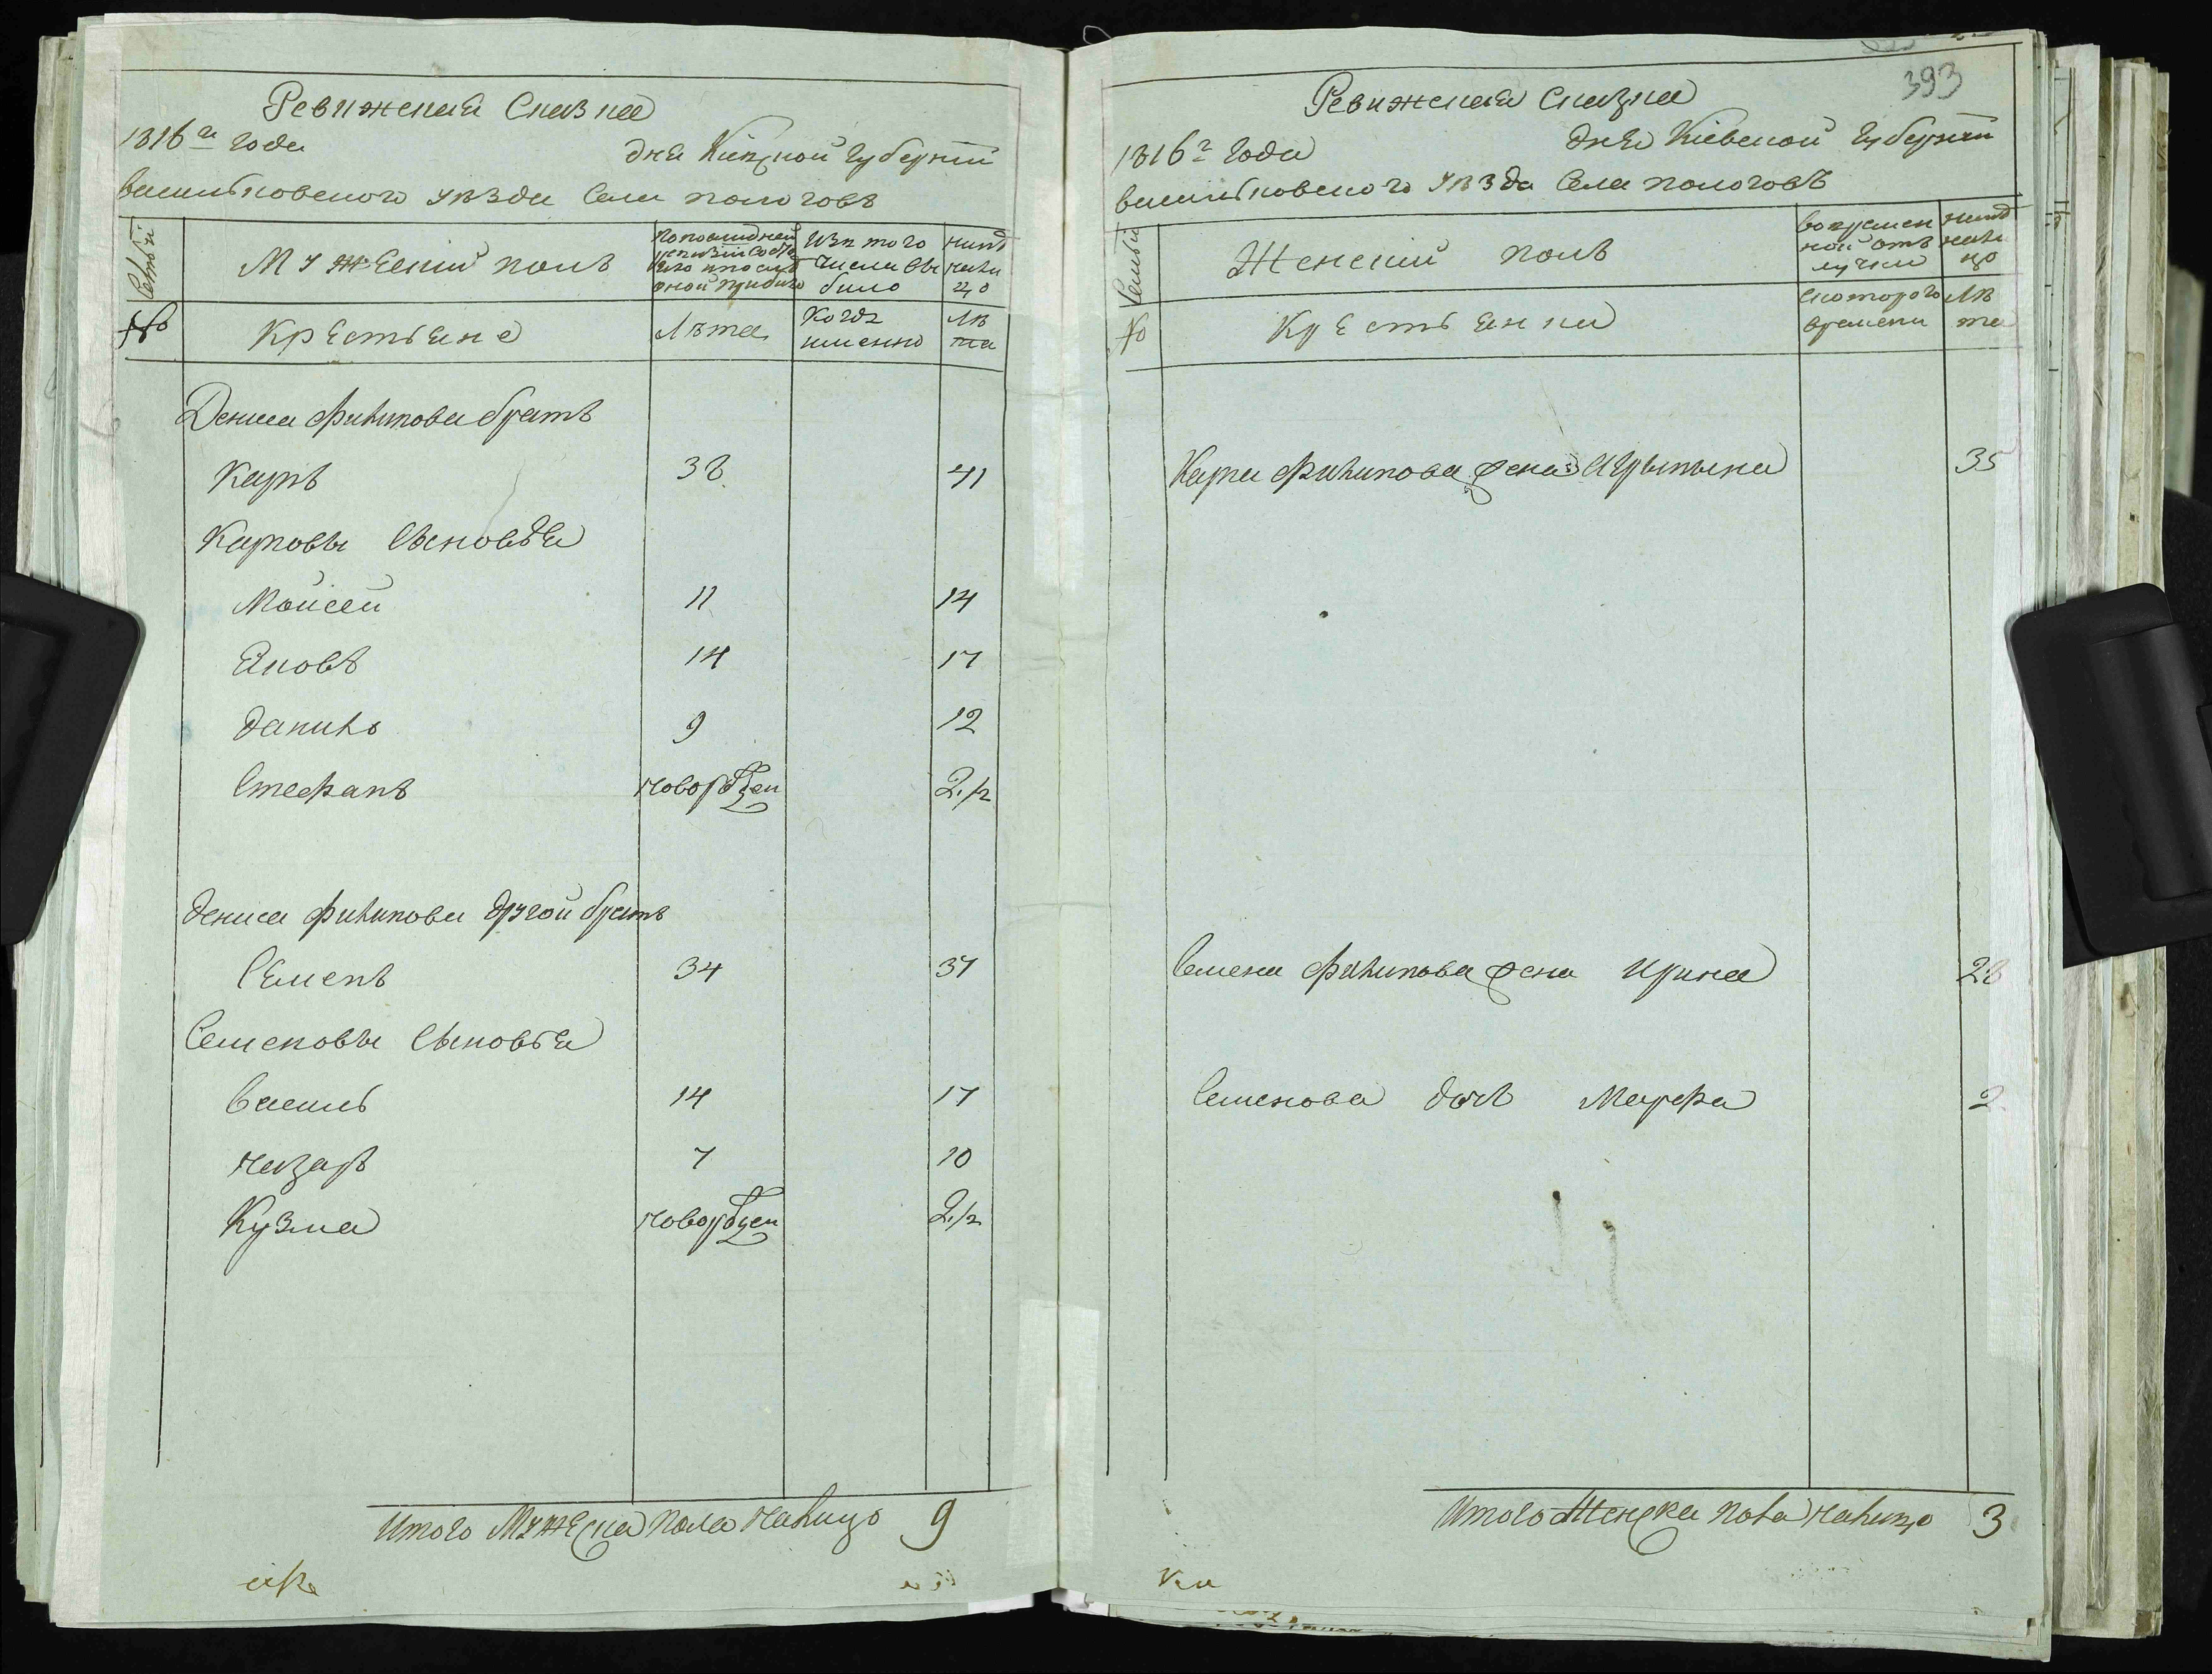 Ревижская Сказка
1816го года дня Кіевской Губерніи
васильковского уѣзда Села пологовъ
Семьи
Мужескій полъ
По последней ревизіи состояло и после оной прибыло
Изъ того числа выбыло
Нынѣ налицо
№
Крестьяне
Лѣта
Когда именно
Лѣта
Дениса Филипова братъ
Карпъ 38 41
Карповы Сыновья
Мойсей 11 14
Яковъ 14 17
Данило 9 12
Стефанъ новорожден 2 1/2
Дениса Филипова другой братъ
Семенъ 34 37
Семеновы Сыновья
Василь 14 17
Назаръ 7 10
Кузма новорожден 2 1/2
Итого Мужеска пола налицо 9
393
Ревижская Сказка
1816го года дня Кіевской Губерніи
васильковского уѣзда Села пологовъ
Семьи
Женскій полъ
Во временной отлучки
Нынѣ налицо
№
Крестьянки
Скоторого времени
Лѣта
Карпа Филипова жена 35
Семена Филипова жена Ирина 28
Семенова дочь Марфа 2
Итого Женска пола налицо 3